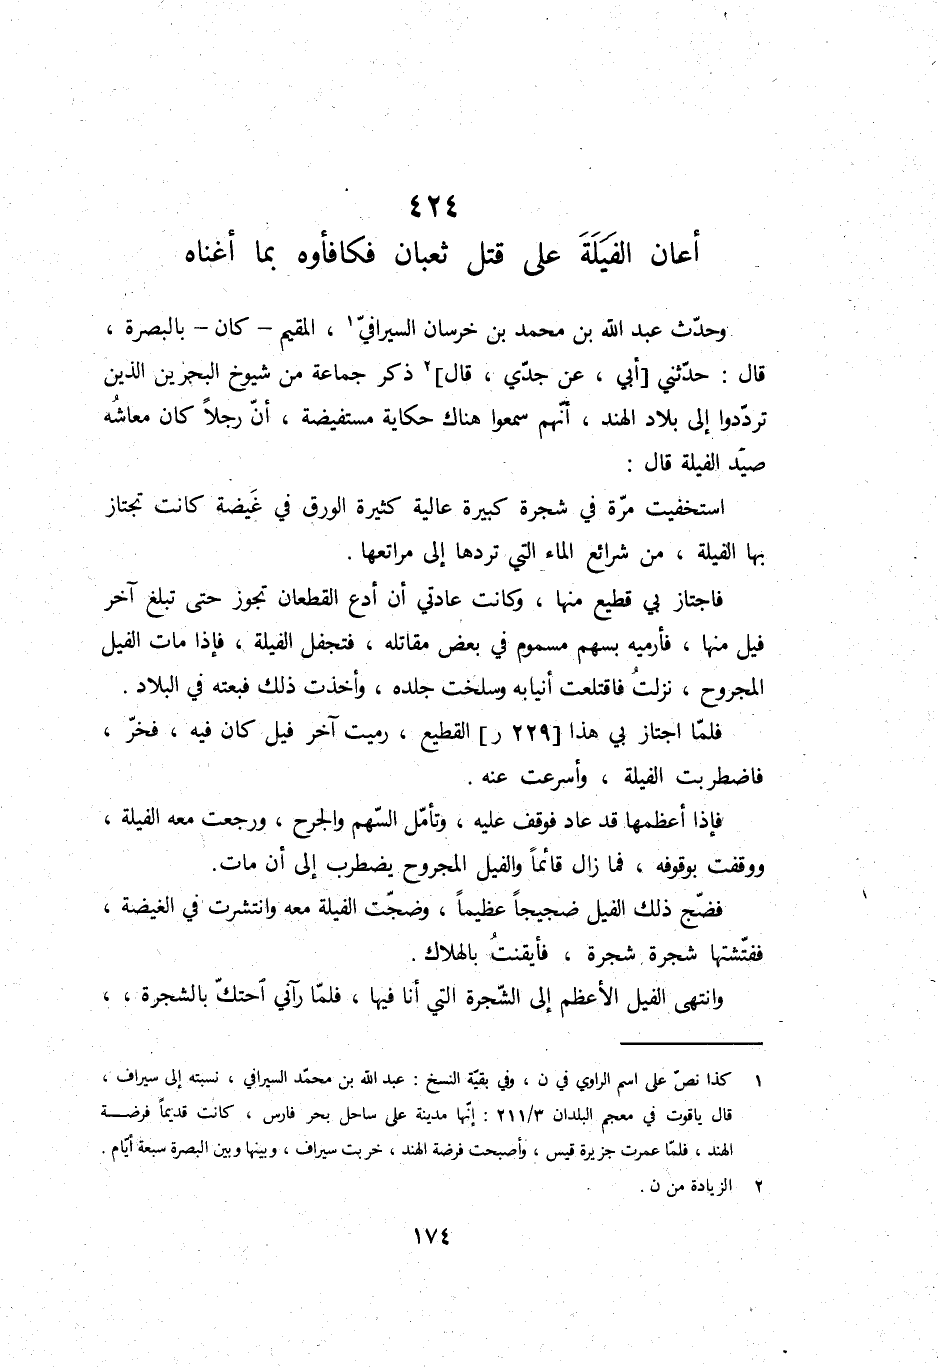 ٤٢٤
أعان الفَيَلَةَ على قتل ثعبان فكافأوه بما أغناه
وحدّث عبد الله بن محمد بن خرسان السيرافيّ١ ، المقيم – كان – بالبصرة ،
قال : حدّثني [أبي ، عن جدّي ، قال]٢ ذكر جماعة من شيوخ البحرين الذين
تردّدوا إلى بلاد الهند ، أنّهم سمعوا هناك حكاية مستفيضة ، أنّ رجلاً كان معاشُه
صيّد الفيلة قال :
استخفيت مرّة في شجرة كبيرة عالية كثيرة الورق في غَيضة كانت تجتاز
بها الفيلة ، من شرائع الماء التي تردها إلى مراتعها .
فاجتاز بي قطيع منها ، وكانت عادتي أن أدع القطعان تجوز حتى تبلغ آخر
فيل منها ، فأرميه بسهم مسموم في بعض مقاتله ، فتجفل الفيلة ، فإذا مات الفيل
المجروح ، نزلتُ فاقتلعت أنيابه وسلخت جلده ، وأخذت ذلك فبعته في البلاد .
فلمّا اجتاز بي هذا [٢٢٩ ر] القطيع ، رميت آخر فيل كان فيه ، فخرّ ،
فاضطربت الفيلة ، وأسرعت عنه .
فإذا أعظمها قد عاد فوقف عليه ، وتأمّل السّهم والجرح ، ورجعت معه الفيلة ،
ووقفت بوقوفه ، فما زال قائماً والفيل المجروح يضطرب إلى أن مات.
فضّج ذلك الفيل ضجيجاً عظيماً ، وضجّت الفيلة معه وانتشرت في الغيضة ،
ففتّشتها شجرة شجرة ، فأيقنتُ بالهلاك .
وانتهى الفيل الأعظم إلى الشّجرة التي أنا فيها ، فلمّا رآني احتكّ بالشجرة ، ،
١ كذا نصّ على اسم الراوي في ن ، وفي بقيّة النسخ : عبد الله بن محمّد السيرافي ، نسبته إلى سيراف ،
قال ياقوت في معجم البلدان ٢١١/٣ : إنّها مدينة على ساحل بحر فارس ، كانت قديماً فرضـــة
الهند ، فلمّا عمرت جزيرة قيس ، وأصبحت فرضة الهند ، خربت سيراف ، وبينها وبين البصرة سبعة أيّام .
٢ الزيادة من ن .
١٧٤